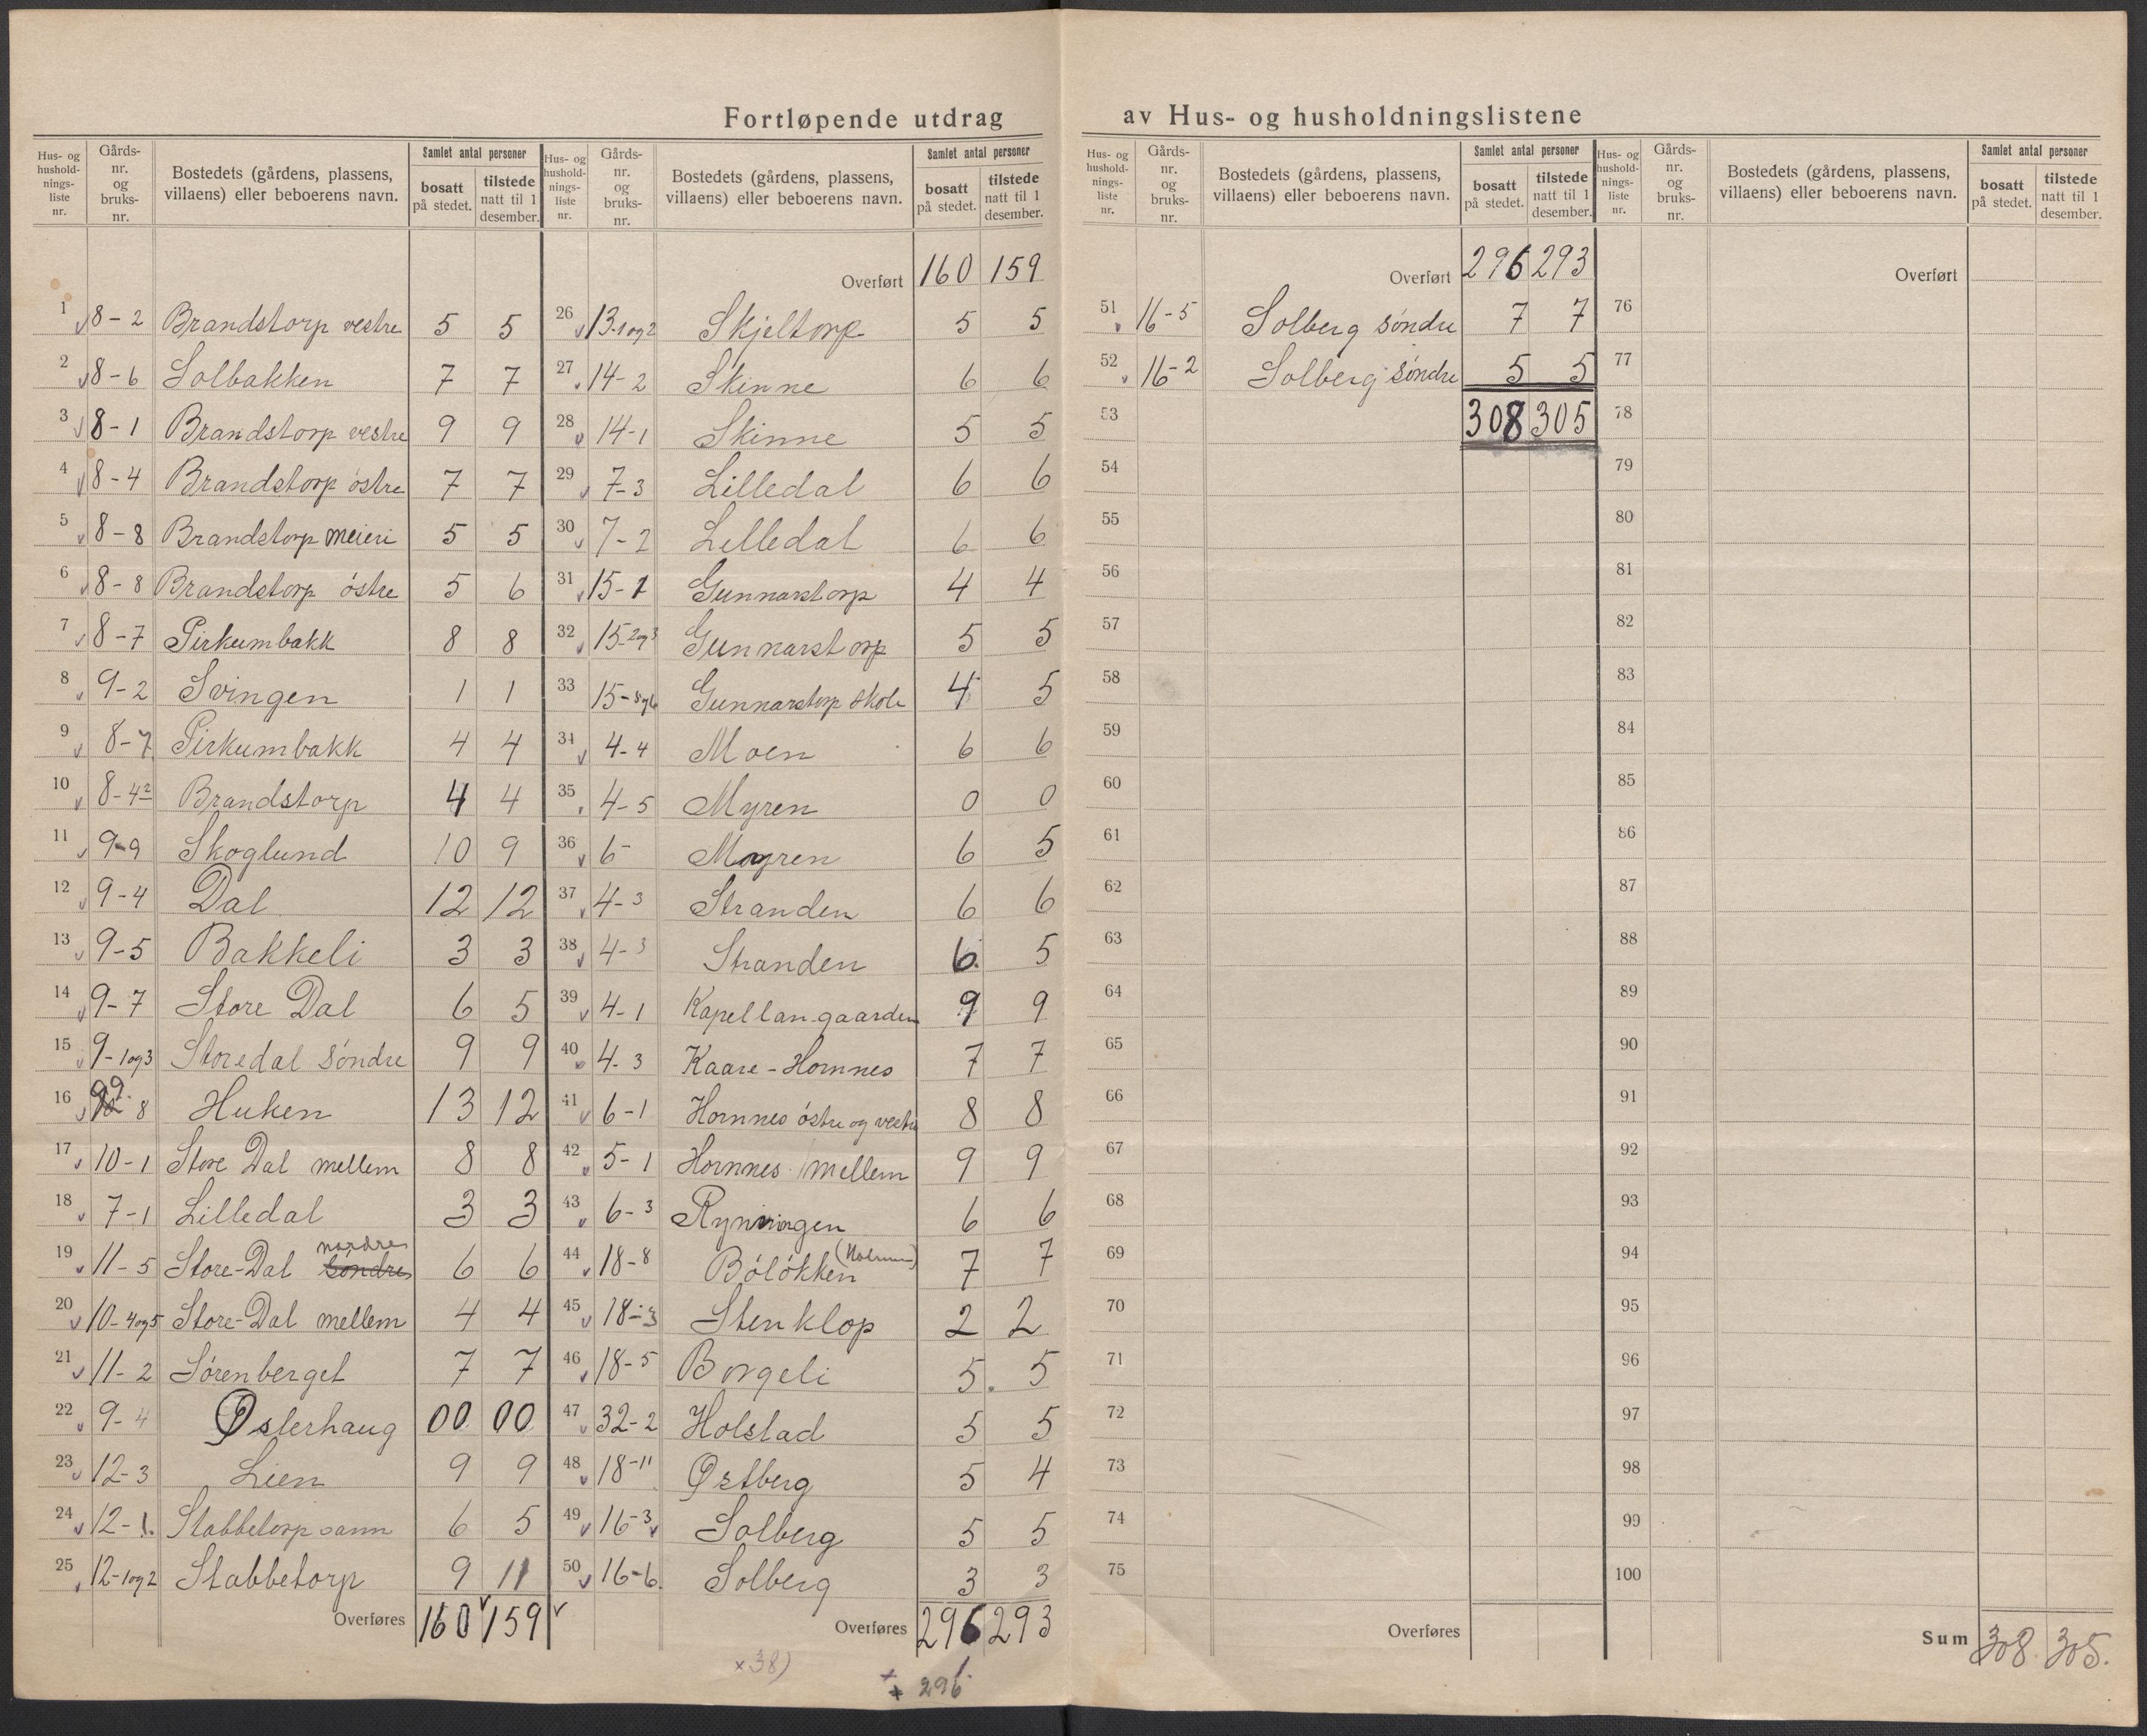 Fortløpende utdrag av Hus- og husholdningslistene
Hus- og hushold-nings-liste nr. | Gårds-nr. og bruks-nr. | Bostedets (gårdens, plassens, villaens) eller beboerens navn. | Samlet antal personer | bosatt på stedet. | tilstede natt til 1 desember.
1 8-2 Brandstorp vestre 5 5
2 8-6 Solbakken 7 7
3 8-1 Brandstorp vestre 9 9
4 8-4 Brandstorp østre 7 7
5 8-8 Brandstorp meieri 5 5
6 8-8 Brandstorp østre 5 6
7 8-7 Pirkumbakk 8 8
8 9-2 Svingen 1 1
9 8-7 Pirkumbakk 4 4
10 8-4² Brandstorp 4 4
11 9-9 Skoglund 10 9
12 9-4 Dal 12 12
13 9-5 Bakkeli 3 3
14 9-7 Store Dal 6 5
15 9-1og3 Storedal søndre 9 9
16 8 Huken 13 12
17 10-1 Store Dal mellem 8 8
18 7-1 Lilledal 3 3
19 11-5 Store-Dal søndre nordre 6 6
20 10-4og5 Store-Dal mellem 4 4
21 11-2 Sørenberget 7 7
22 9-4 Østerhaug 00 00
23 12-3 Lien 9 9
24 12-1. Stabbetorp 6 5
25 12-1og2 Stabbetorp 9 11
Overføres 160 159
Hus- og hushold-nings-liste nr. | Gårds-nr. og bruks-nr. | Bostedets (gårdens, plassens, villaens) eller beboerens navn. | Samlet antal personer | bosatt på stedet. | tilstede natt til 1 desember.
Overført 160 159
26 13-1og2 Skjeltorp 5 5
27 14-2 Skinne 6 6
28 14-1 Skinne 5 5
29 7-3 Lilledal 6 6
30 7-2 Lilledal 6 6
31 15-1 Gunnarstorp 4 4
32 15-2og3 Gunnarstorp 5 5
33 15- Gunnarstorp skole 4 5
34 4-4 Moen 6 6
35 4-5 Myren 0 0
36 6- Myren 6 5
37 4-3 Stranden 6 6
38 4-3 Stranden 6 5
39 4-1 Kapellangaarden 9 9
40 4-3 Kaare-Hornnes 7 7
41 6-1 Hornnes østre og vestre 8 8
42 5-1 Hornnes mellem 9 9
43 6-3 Rynningen 6 6
44 18-8 Bøløkken 7 7
45 18-3 Stenklop 2 2
46 18-5 Borgeli 5. 5
47 32-2 Holstad 5 5
48 18-11 Østberg 5 4
49 16-3 Solberg 5 5
50 16-6. Solberg 3 3
Overføres 296 293
x38)
x 296
Hus- og hushold-nings-liste nr. | Gårds-nr. og bruks-nr. | Bostedets (gårdens, plassens, villaens) eller beboerens navn. | Samlet antal personer | bosatt på stedet. | tilstede natt til 1 desember.
Overført 296 293
51 16-5 Solberg søndre 7 7
52 16-2 Solberg søndre 5 5
53 308 305
54
55
56
57
58
59
60
61
62
63
64
65
66
67
68
69
70
71
72
73
74
75
Overføres
Hus- og hushold-nings-liste nr. | Gårds-nr. og bruks-nr. | Bostedets (gårdens, plassens, villaens) eller beboerens navn. | Samlet antal personer | bosatt på stedet. | tilstede natt til 1 desember.
Overført
76
77
78
79
80
81
82
83
84
85
86
87
88
89
90
91
92
93
94
95
96
97
98
99
100
Sum 308. 305.